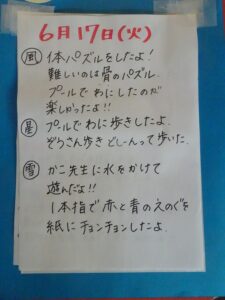 6月17日(火)
風 1本パズルをしたよ!
難しいのは骨のパズル.
プールでわにしたのが
楽しかったよ!!
星 プールでわに歩きしたよ.
ぞうさん歩き どしーんって歩いた.
雪 かこ先生に水をかけて
遊んだよ!!
1本指で赤と青のえのぐを
紙にチョンチョンしたよ